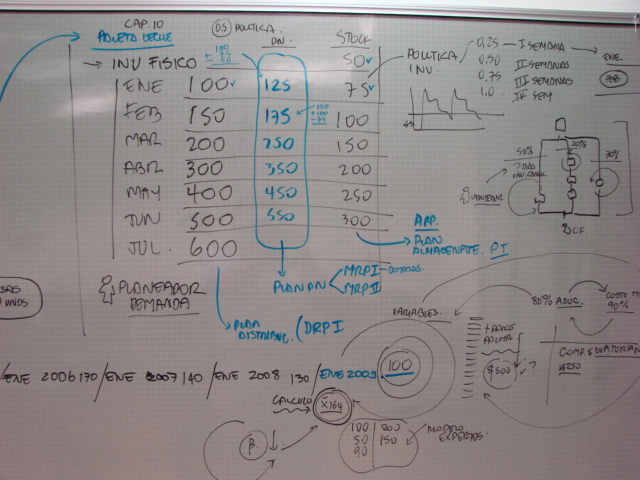 CAP. 10
PALETA LECHE
D.S. POLITICA
PN.
STOCK
→ INV FISICO
50
ENE 100 125 75
FEB 150 175 100
MAR 200 250 150
ABR 300 350 200
MAY 400 450 250
JUN 500 550 300
JUL. 600
150
+100
-75
POLITICA
INV.
0,25 - I SEMANA
0.50 II SEMANAS
0.75 III SEMANAS
1.0 - IV SEM
ENE.
FEB
50%
20%
30%
7 DIAS
VENDEDOR
CF.
APP.
PLAN
PI
PLAN PN
MRP I
MRP II
PLANEADOR
DEMANDA
PLAN
DRP I
VARIABLES.
80% AZUC.
90%
$500
?
$250
ENE 2006 170 / ENE 2007 140 / ENE 2008 130 / ENE 2009.
100
CALCULO
X164
β
100 200
50 150
90
MODELO
EXPERTOS.